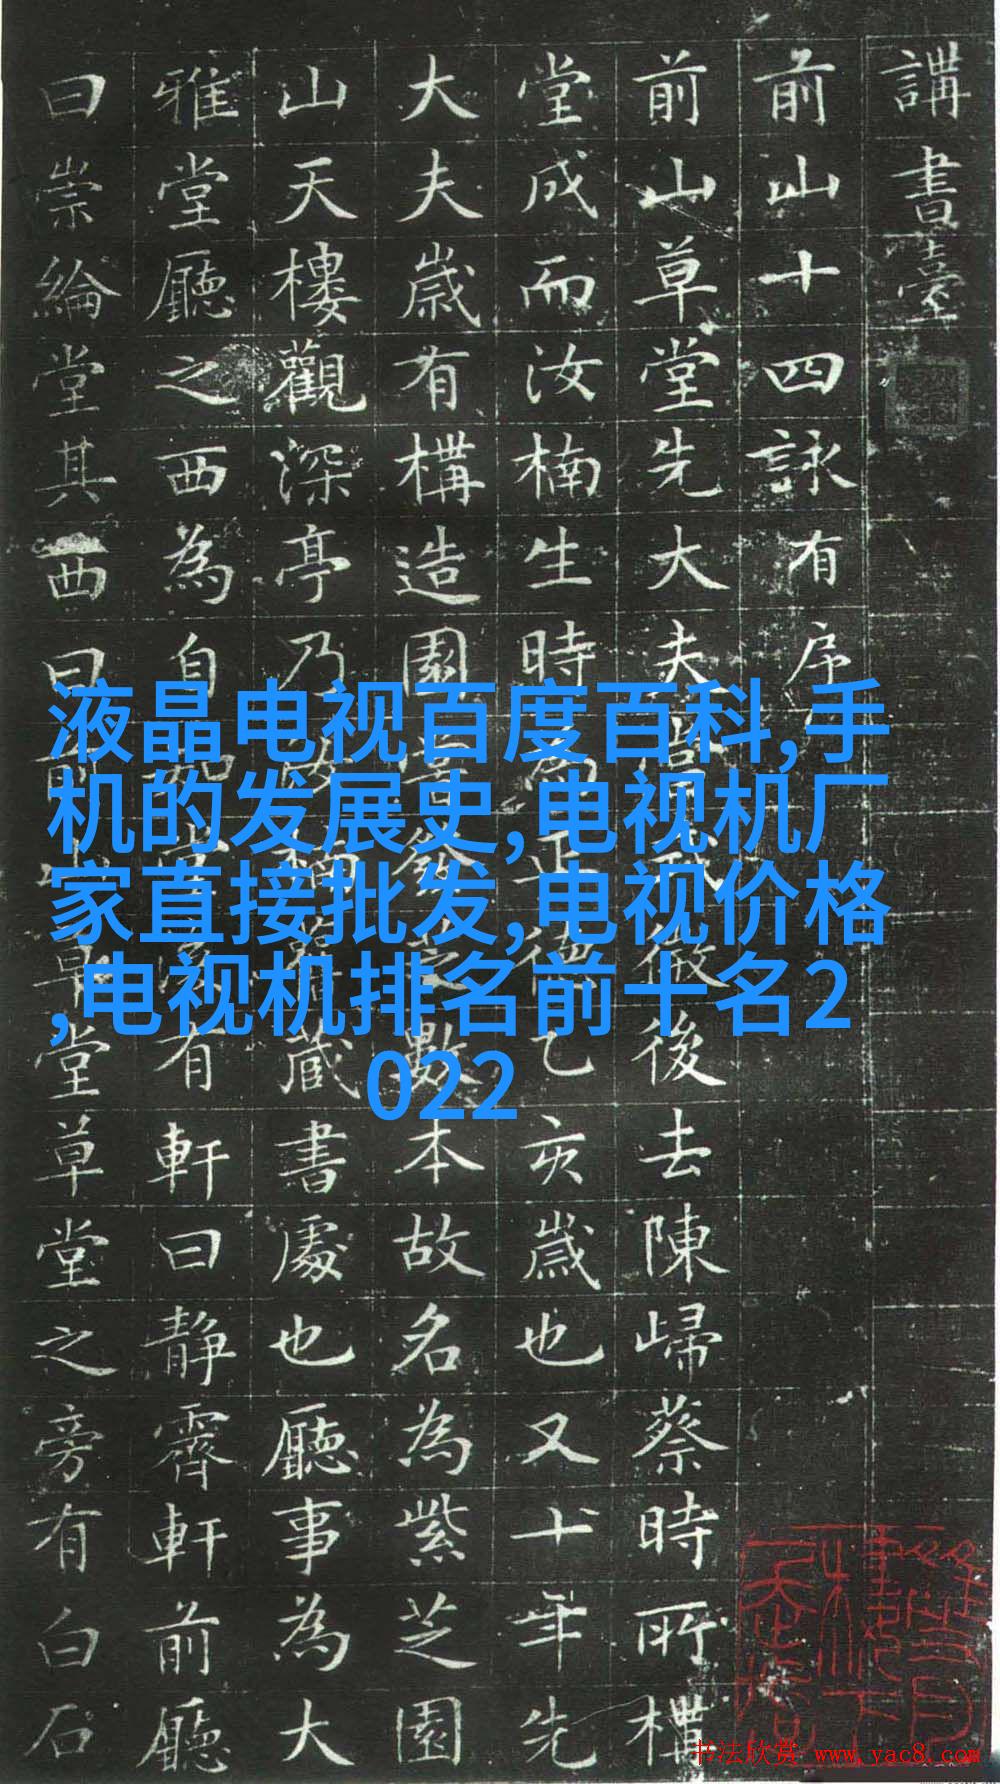 講書臺
前山十四詠有序
前山草堂先大夫後去陳歸蔡時所構
堂成而汝楠生時為正德乙亥歲也又十年先
大夫歲有構造園數本故名為紫芝園
山天樓觀深亭乃汝楠藏書處也廳事為大
雅堂廳之西為自有軒曰靜霽軒前廳
曰崇綸堂其西曰前山草堂草堂之旁有白石
液晶电视百度百科,手
机的发展史,电视机厂
家直接批发,电视价格
,电视机排名前十名2
022
书法欣赏 www.yac8.com